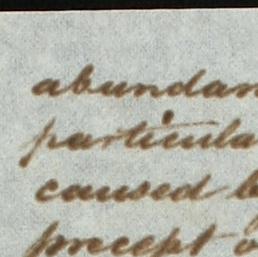 abundan
particula
caused b
precept o